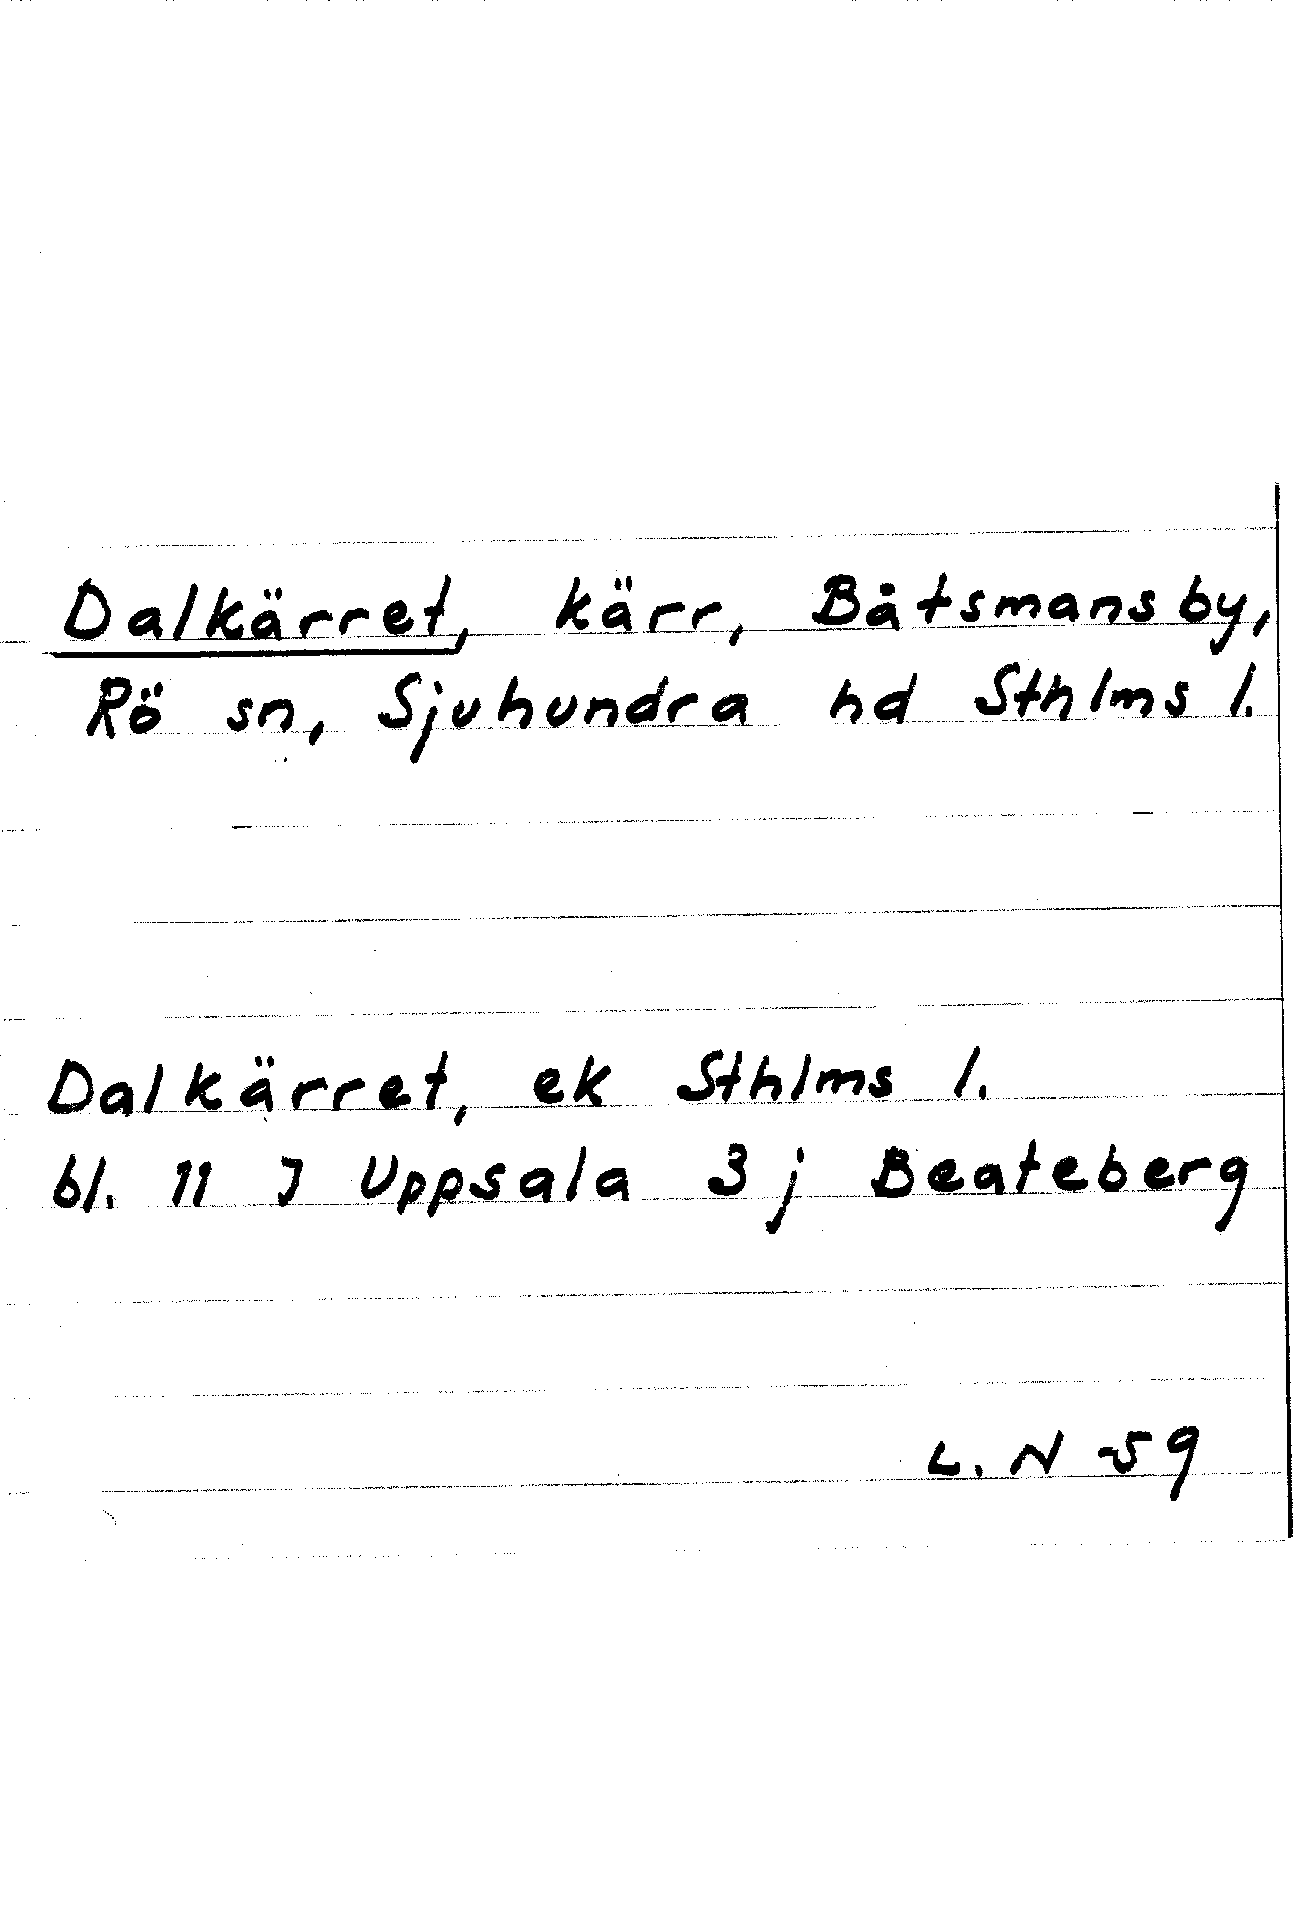 Dalkärret, kärr, Båtsmansby,
Rö sn, Sjuhundra hd Sthlms l.
Dalkärret, ek Sthlms l.
bl. 11 J Uppsala 3 j Beateberg
L. N 59